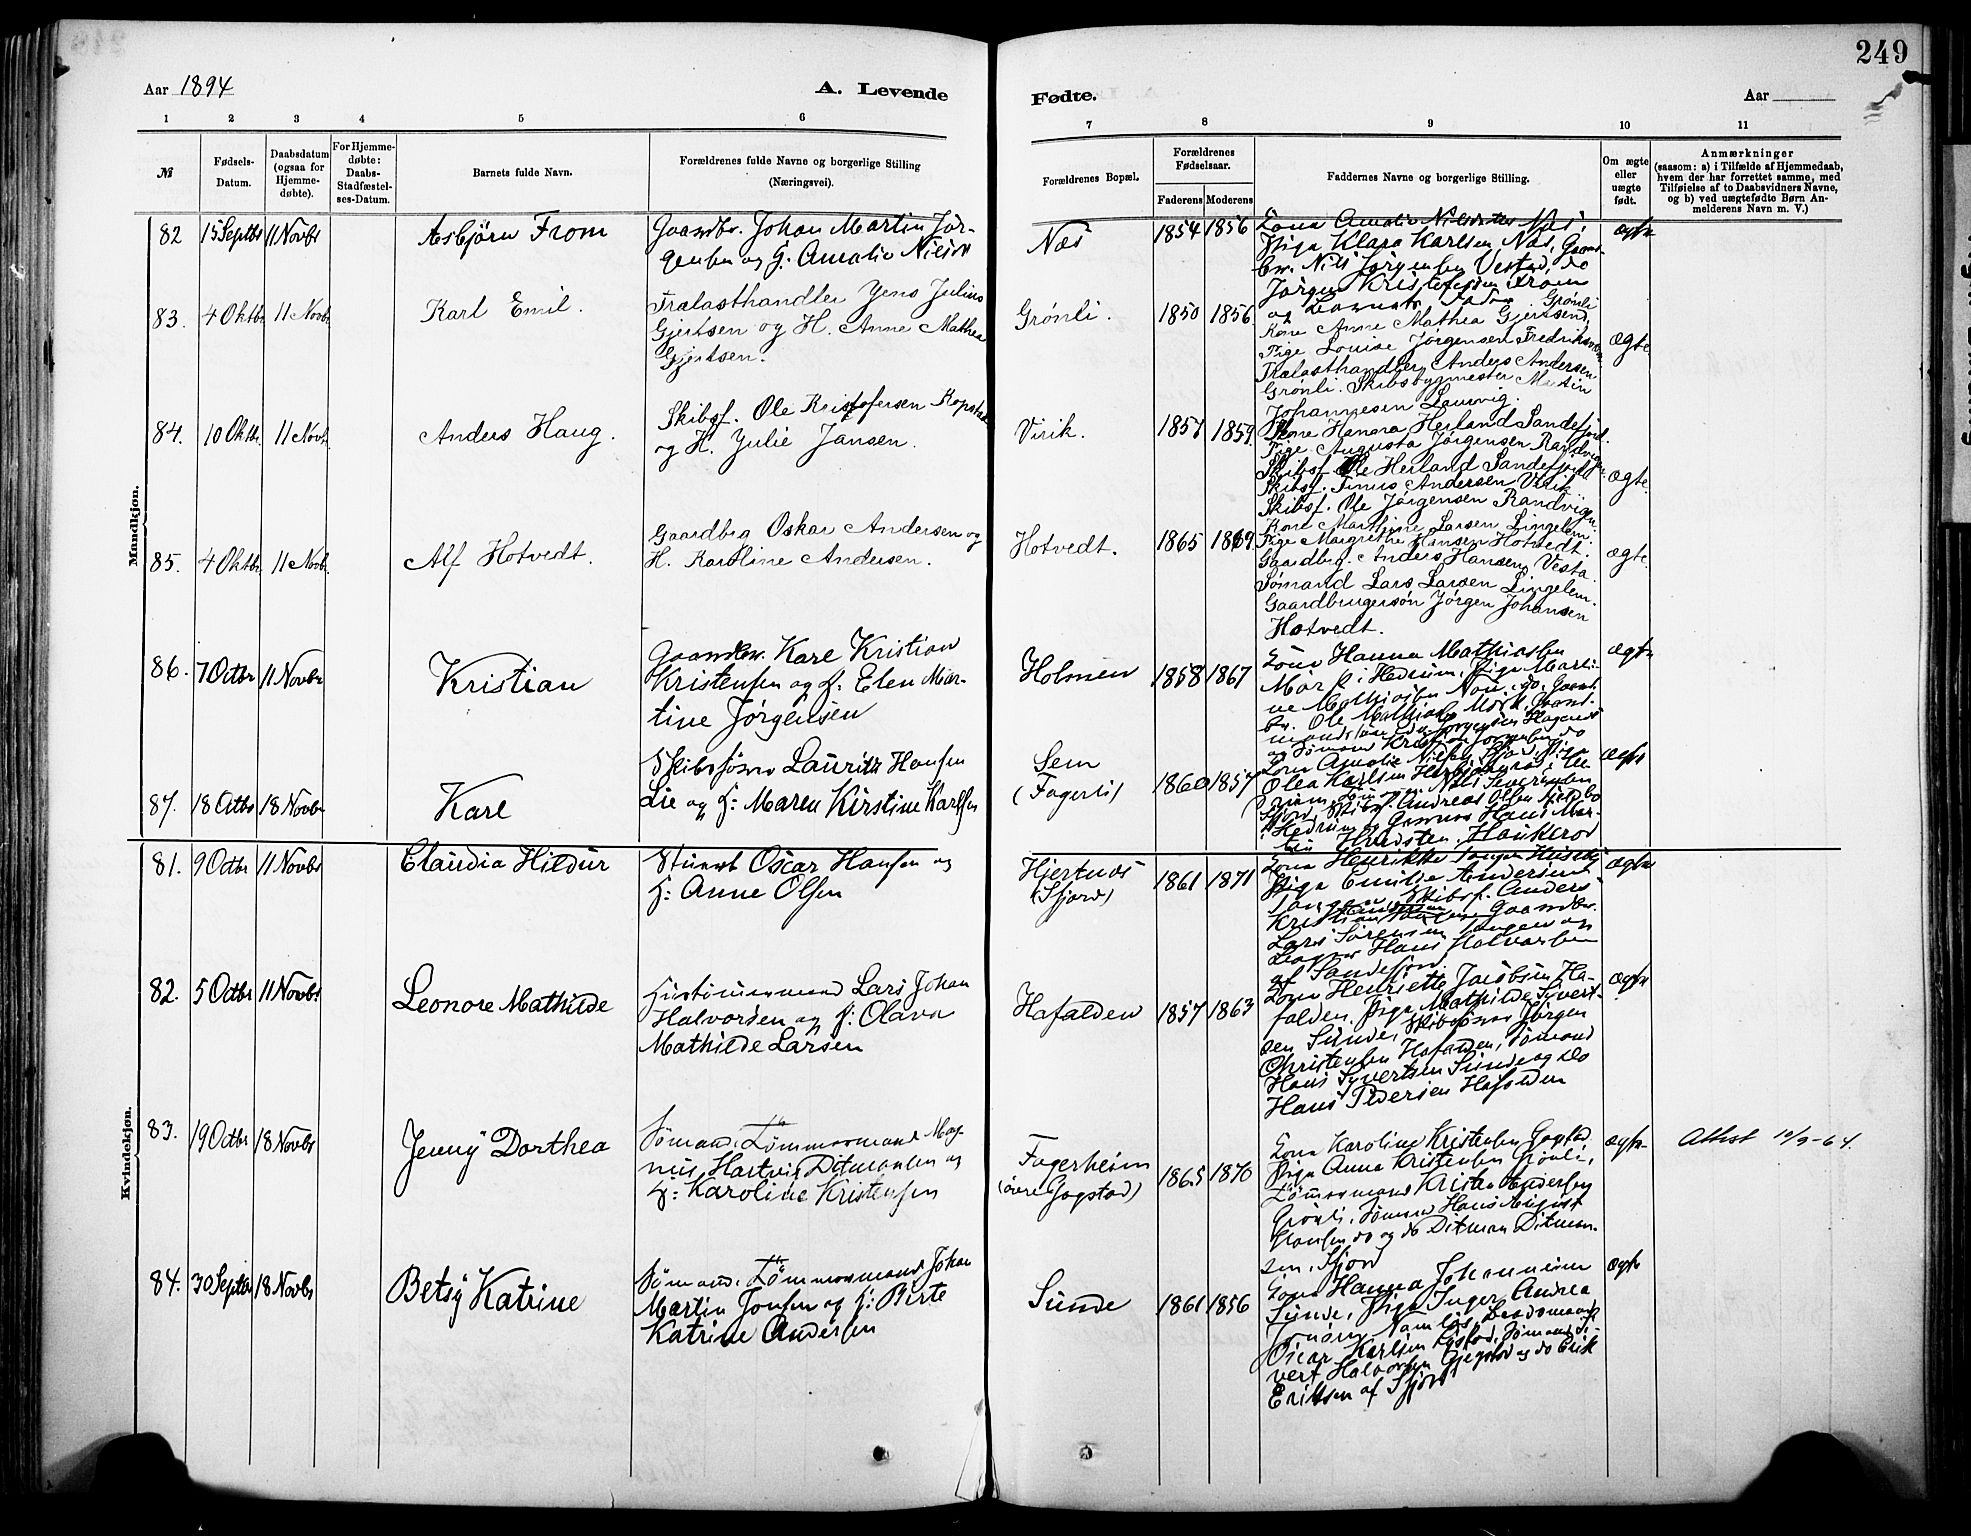 249
Aar 1894
A. Levende
Fødte.
Aar
1 2 3 4 5 6 7 8 9 10 11
№
Fødsels-
Datum.
Daabsdatum
(ogsaa for
Hjemme-
døbte).
For Hjemme-
døbte:
Daabs-
Stadfæstel-
ses-Datum.
Barnets fulde Navn.
Forældrenes fulde Navne og borgerlige Stilling
(Næringsvei).
Forældrenes Bopæl.
Forældrenes
Fødselsaar.
Faderens Moderens
Faddernes Navne og borgerlige Stilling.
Om ægte
eller
uægte
født.
Anmærkninger
(saasom: a) i Tilfælde af Hjemmedaab,
hvem der har forrettet samme, med
Tilføielse af to Daabsvidners Navne,
og b) ved uægtefødte Børn An-
melderens Navn m. V.)
Mandkjøn.
82 15 Septbr 11 Novbr
Asbjörn From
Gaardbr. Johan Martin Jör-
gensen og H. Amalie Nielsen
Næs
1854 1856
Kona Amalie Næs,
Pige Klara Karlsen Næs, Gaard-
br. Nils Jørgensen Vestad, do
Jørgen Kristofersen From
og Barnets Fader
ægte
83. 4 Oktbr. 11 Novbr.
Karl Emil.
Trælasthandler Jens Julius
Gjertsen og H. Anne Mathea
Gjertsen.
Grønli.
1850 1856.
Kone Anne Mathea Gjertsen, Grønli
Pige Louise Jørgensen Fredriksværn
Trælasthandler Anders Andersen
Grønli. Skibsbygmester Martin
Johannesen Laurvig.
ægte.
84. 10 Oktbr. 11 Novbr.
Anders Haug.
Skibsf. Ole Kristofersen Kopstad
og H. Julie Jansen.
Virik.
1857 1859.
Kone Hanna Herland Sandefjord.
Pige Augusta Jørgensen Randvigen
Skibsf. Ole Herland Sandefjord
Skibsf. Tinius Andersen Virik
Skibsf. Ole Jørgensen Randvigen
ægte.
85. 4 Oktbr. 11 Novbr.
Alf Hotvedt.
Gaardbrg Oskar Andersen og
H. Karoline Andersen.
Hotvedt.
1865 1869.
Kone Marthine Larsen Lingelem.
Pige Margrethe Hansen Hotvedt.
Gaardbrg. Anders Hansen Vesta.
Sømand Lars Larsen Lingelem.
Gaardbrugersøn Jørgen Johansen
Hotvedt.
ægte.
86. 7 Octbr 11 Novbr
Kristian
Gaardbr. Karl Kristian
Kristensen og H: Elen Mar-
tine Jørgensen
Holmen
1858 1867
Kona Hanna Mathiasen
Mørk i Hedrum, Pige Marti-
ne Mathiasen Nau, do, Gaard-
br. Ole Mathiasen Mørk, Gaard-
og Sømand Kristian Jørgensen do
ægte
87. 18 Octbr 18 Novbr
Karl
Skibstømr Lauritz Hansen
Lie og H: Maren Kirstine Karlsen
Sem
(Fagerli)
1860 1857
Kona Amalie Nilsen Sfjord, Pige
Olea Karlsen
Sfjord, Skibsf. Andreas Olsen
i Hedrum og Hans Mar-
tin Hvidsten, Haukerød
ægte
Kvindekjøn.
81. 9 Octbr 11 Novbr
Claudia Hildur
Stuert Oscar Hansen og
H: Anne Olsen
Hjertnæs
(Sfjord)
1861 1871
Kona Henrikke
Pige Emilie Andersen
Tangen, Skibsf. Anders
Kristian Gaardbr.
Lars Sørensen Tangen og
Hans Halvorsen
af Sandefjord.
ægte
82. 5 Octbr 11 Novbr
Leonore Mathilde
Hustømmermand Lars Johan
Halvorsen og H: Olava
Mathilde Larsen
Hafalden
1857 1863
Kona Henriette Jacobsen Ha-
falden, Pige Mathilde Syvert-
sen Sunde, Skibstømr Jørgen
Christensen Hafalden, Sømand
Hans Syvertsen Sunde og do
Hans Pedersen Hafalden
ægte
83. 19 Octbr 18 Novbr
Jenny Dorthea
Sømand, Tømmermand Mag-
nus Hartvig Ditmansen og
H: Karoline Kristensen
Fagerheim
(øvre Gogstad)
1865 1870
Kona Karoline Kristensen Gogstad,
Pige Anna Kristensen Grønli,
Tømmermand Kristen Andersen
Grønli, Sømand Hans August
Hansen do og do Ditman Ditman-
sen, Sfjord
ægte
Attest 10/9-64.
84. 30 Septbr 18 Novbr
Betsy Katrine
Sømand, Tømmermand Johan
Martin Jonsen og H: Birte
Katrine Andersen
Sunde
1861 1856
Kona Hanna Johannesen
Sunde, Pige Inger Andrea
Namløs, Baadsmand
Oscar Karlsen Sømand Si-
vert Halvorsen Gjegstad og do Erik
Eriksen af Sfjord
ægte